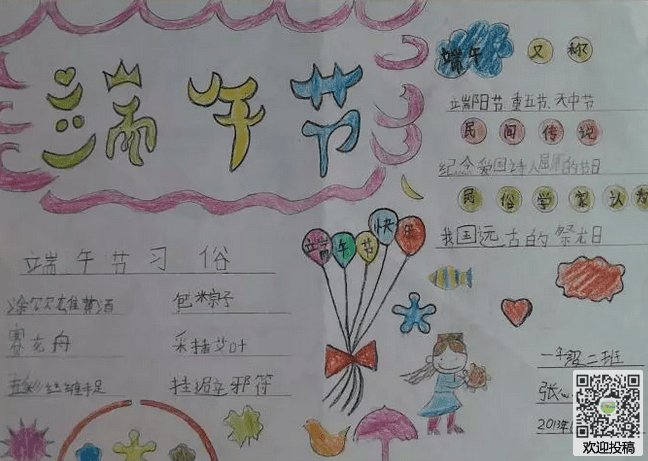 端午节
端午 又 称
端阳节、重五节、天中节
民 间 传 说
纪念爱国诗人屈原的节日
民 俗 学 家 认为
我国远古的祭龙日
端午节快乐
端午节习俗
涂尔雄黄酒
包粽子
赛龙舟
采插艾叶
五彩丝缠手足
挂驱邪符
一年级二班
张
2013年
欢迎投稿